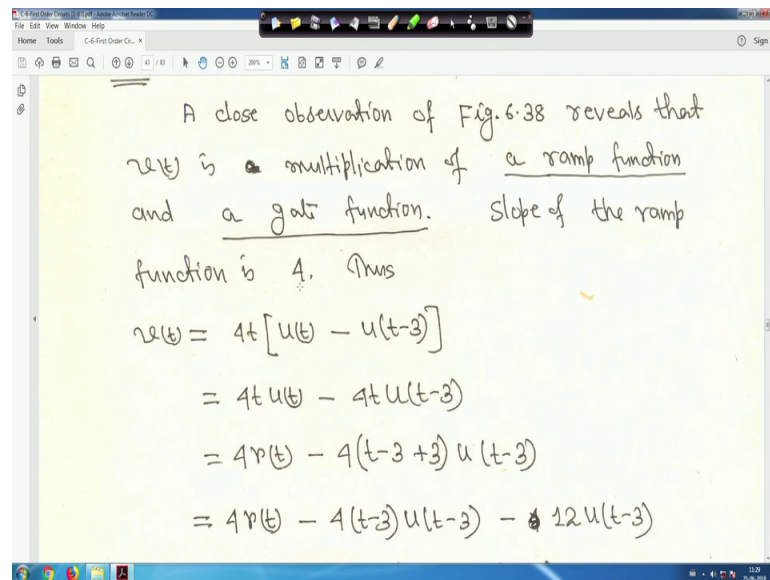 C-6-First Order Circuits [1-83].pdf - Adobe Acrobat Reader DC
File Edit View Window Help
Home Tools C-6-First Order Cir... × Sign
43 / 83 200%
A close observation of Fig. 6.38 reveals that
v(t) is a multiplication of a ramp function
and a gate function. Slope of the ramp
function is 4. Thus
v(t) = 4t[u(t) - u(t-3)]
= 4t u(t) - 4t u(t-3)
= 4r(t) - 4(t-3+3) u(t-3)
= 4r(t) - 4(t-3) u(t-3) - 12 u(t-3)
11:29